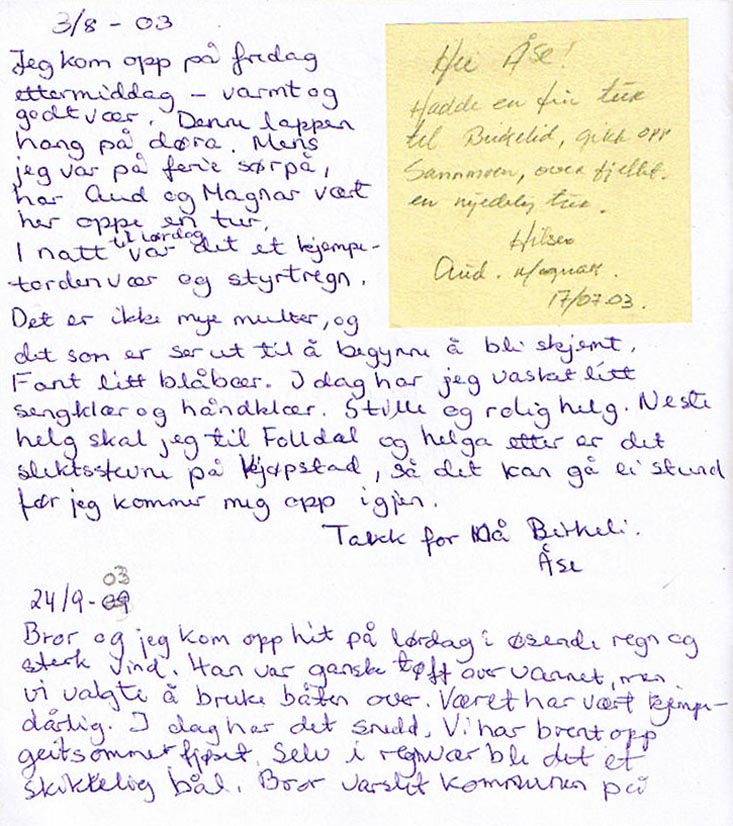 3/8 - 03
Jeg kom opp på fredag
ettermiddag - varmt og
godt vær. Denne lappen
hang på døra. Mens
jeg var på ferie sørpå,
har Aud og Magnar vært
her oppe en tur.
I natt til lørdag var det et kjempe-
tordenvær og styrtregn.
Det er ikke mye multer, og
det som er ser ut til å begynne å bli skjemt.
Fant litt blåbær. I dag har jeg vasket litt
sengklær og håndklær. Stille og rolig helg. Neste
helg skal jeg til Folldal og helga etter er det
slektsstevne på Kjøpstad, så det kan gå ei stund
før jeg kommer meg opp igjen.
Takk for nå Birkeli.
Åse
Hei Åse!
Hadde en fin tur
til Birkelid, gikk opp
Sannmoen, over fjellet.
en nydelig tur.
Hilsen
Aud. Magnar.
17/07 03.
24/9 - 03
Bror og jeg kom opp hit på lørdag i øsende regn og
sterk vind. Han var ganske tøft over vannet, men
vi valgte å bruke båten over. Været har vært kjempe-
dårlig. I dag har det snødd. Vi har brent opp
geitsommerfjøset. Selv i regnvær ble det et
skikkelig bål. Bror varslet kommunen på